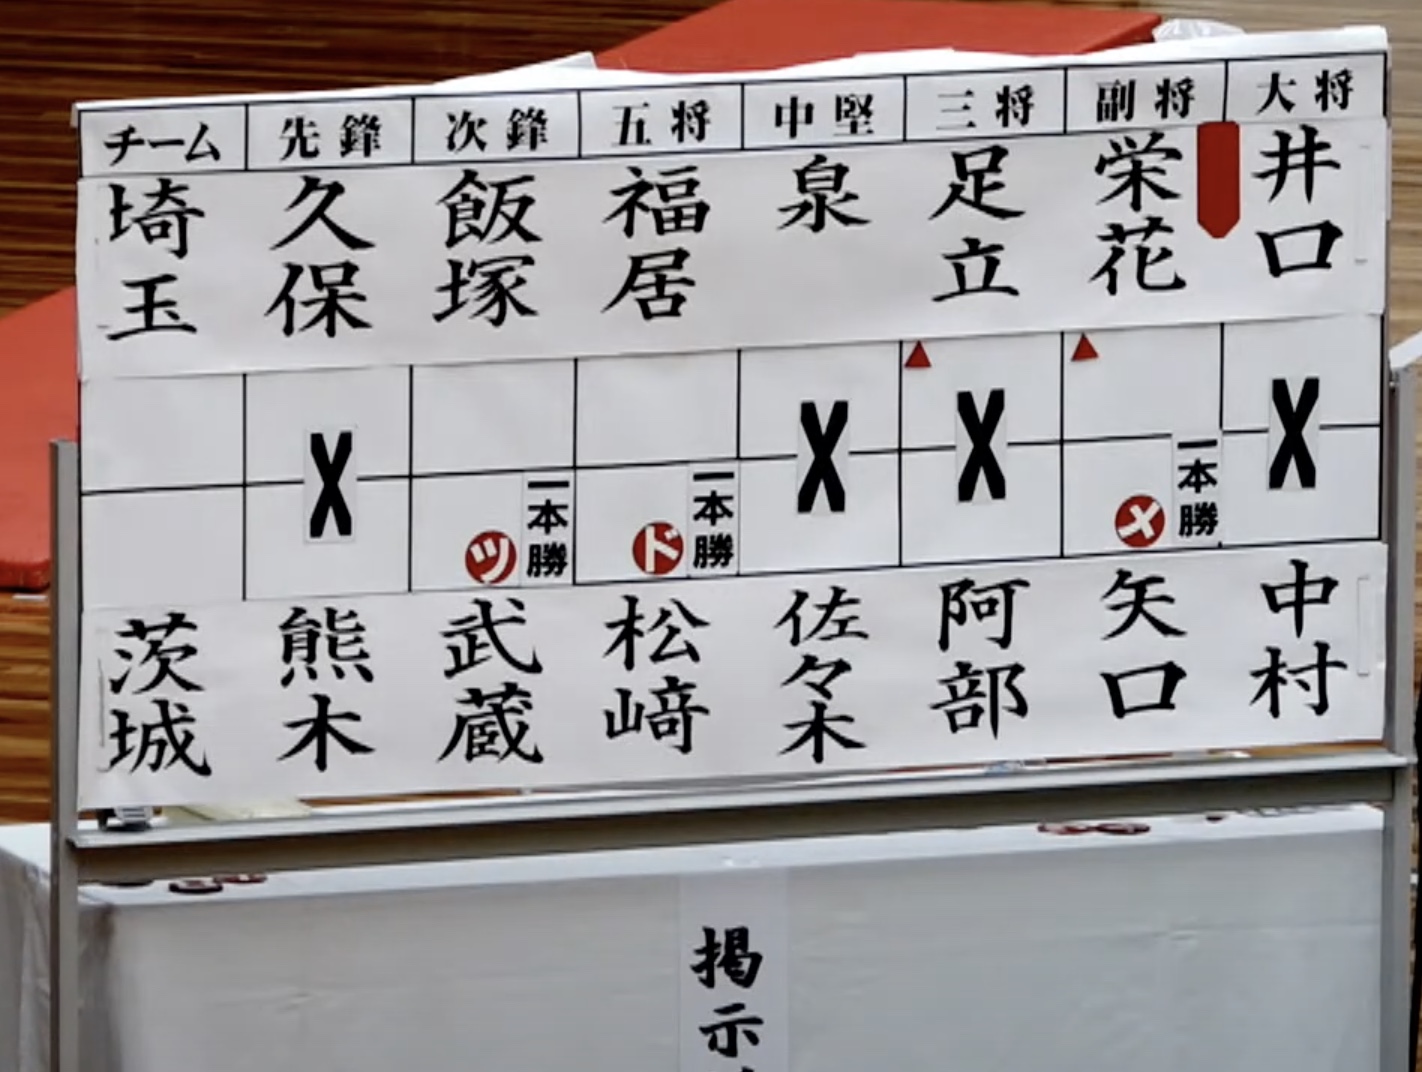 チーム 先鋒 次鋒 五将 中堅 三将 副将 大将
埼玉 久保 飯塚 福居 泉 足立 栄花 井口
X ツ 一本勝 ド 一本勝 X X メ 一本勝 X
茨城 熊木 武蔵 松﨑 佐々木 阿部 矢口 中村
掲示